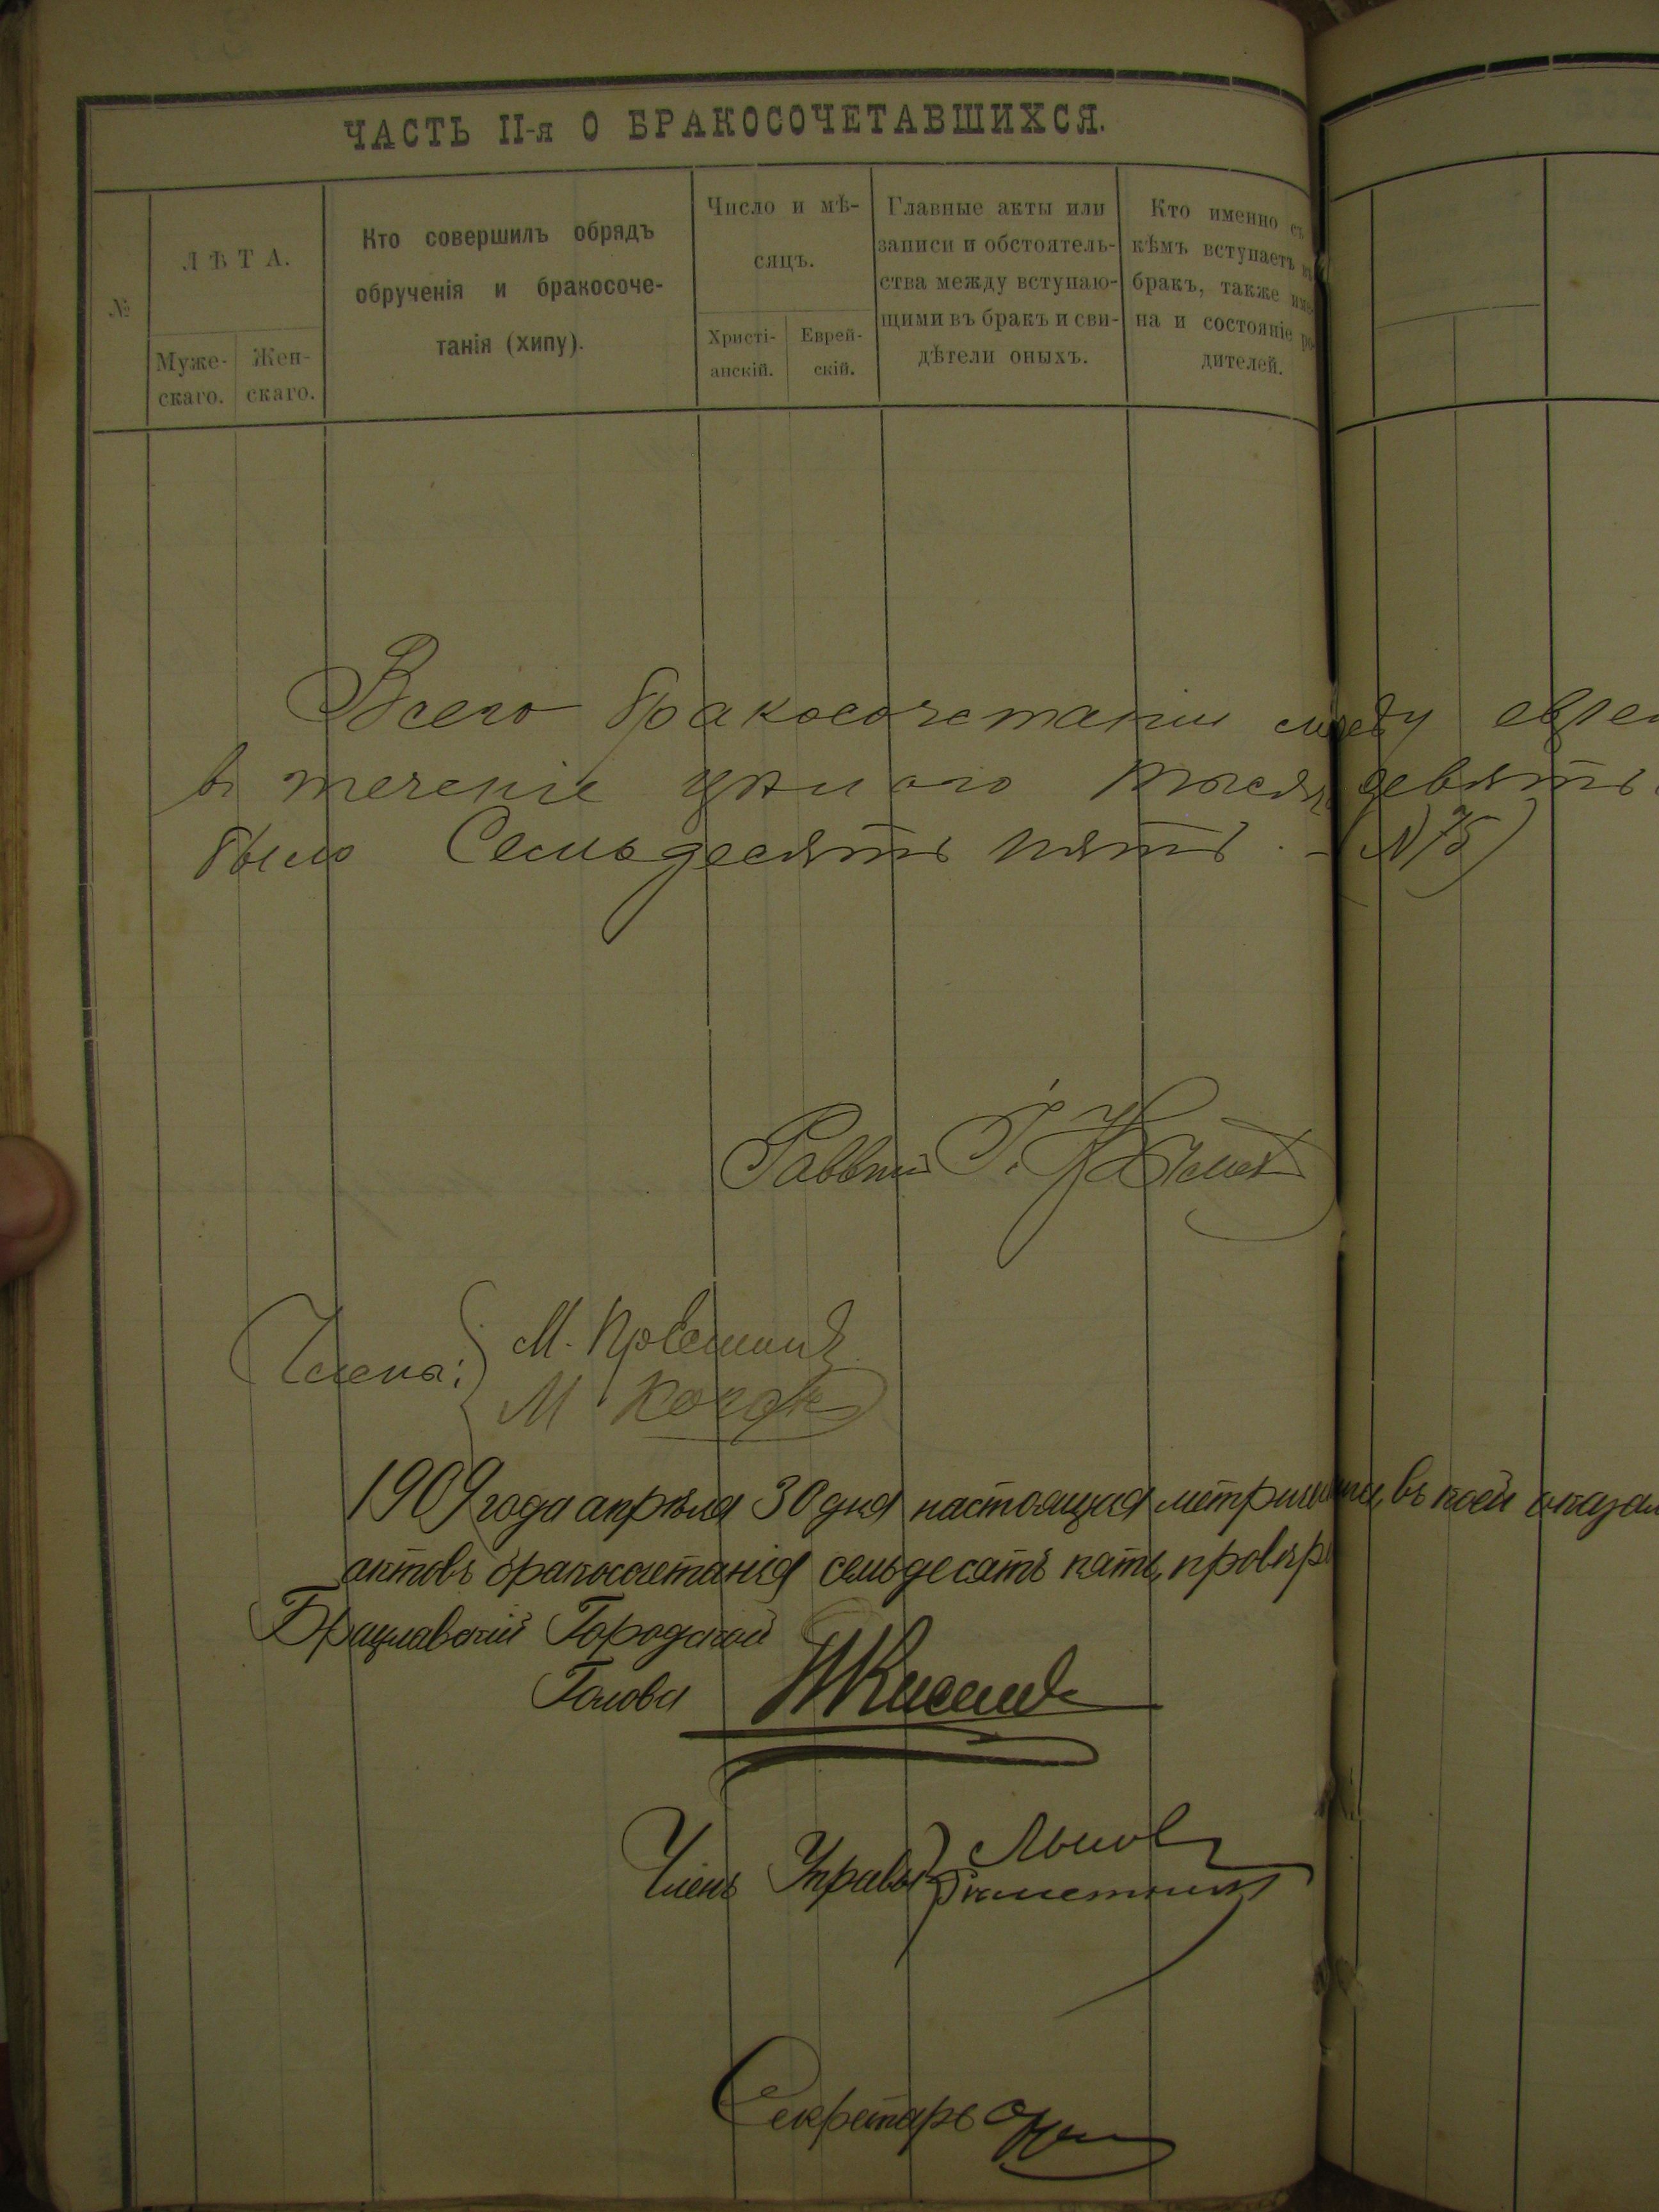 ЧАСТЬ II-я О БРАКОСОЧЕТАВШИХСЯ.
№
ЛѢТА.
Муже-
скаго.
Жен-
скаго.
Кто совершилъ обрядъ
обрученія и бракосоче-
танія (хипу).
Число и мѣ-
сяцъ.
Христі-
анскій.
Еврей-
скій.
Главные акты или
записи и обстоятель-
ства между вступаю-
щими въ бракъ и сви-
дѣтели оныхъ.
Кто именно съ
кѣмъ вступаетъ въ
бракъ, также име-
на и состояніе ро-
дителей.
Всего бракосочетаний между евре
въ теченіе цѣлаго тысяч девять
было Семьдесятъ пять. - (N 75)
Раввинъ І.
Члены:
М.
М.
1909 года апрѣля 30 дня настоящая въ коей оказал
актовъ бракосочетанія семьдесятъ пять, провѣр
Брацлавскій Городской
Голова
Членъ Управы
Секретарь